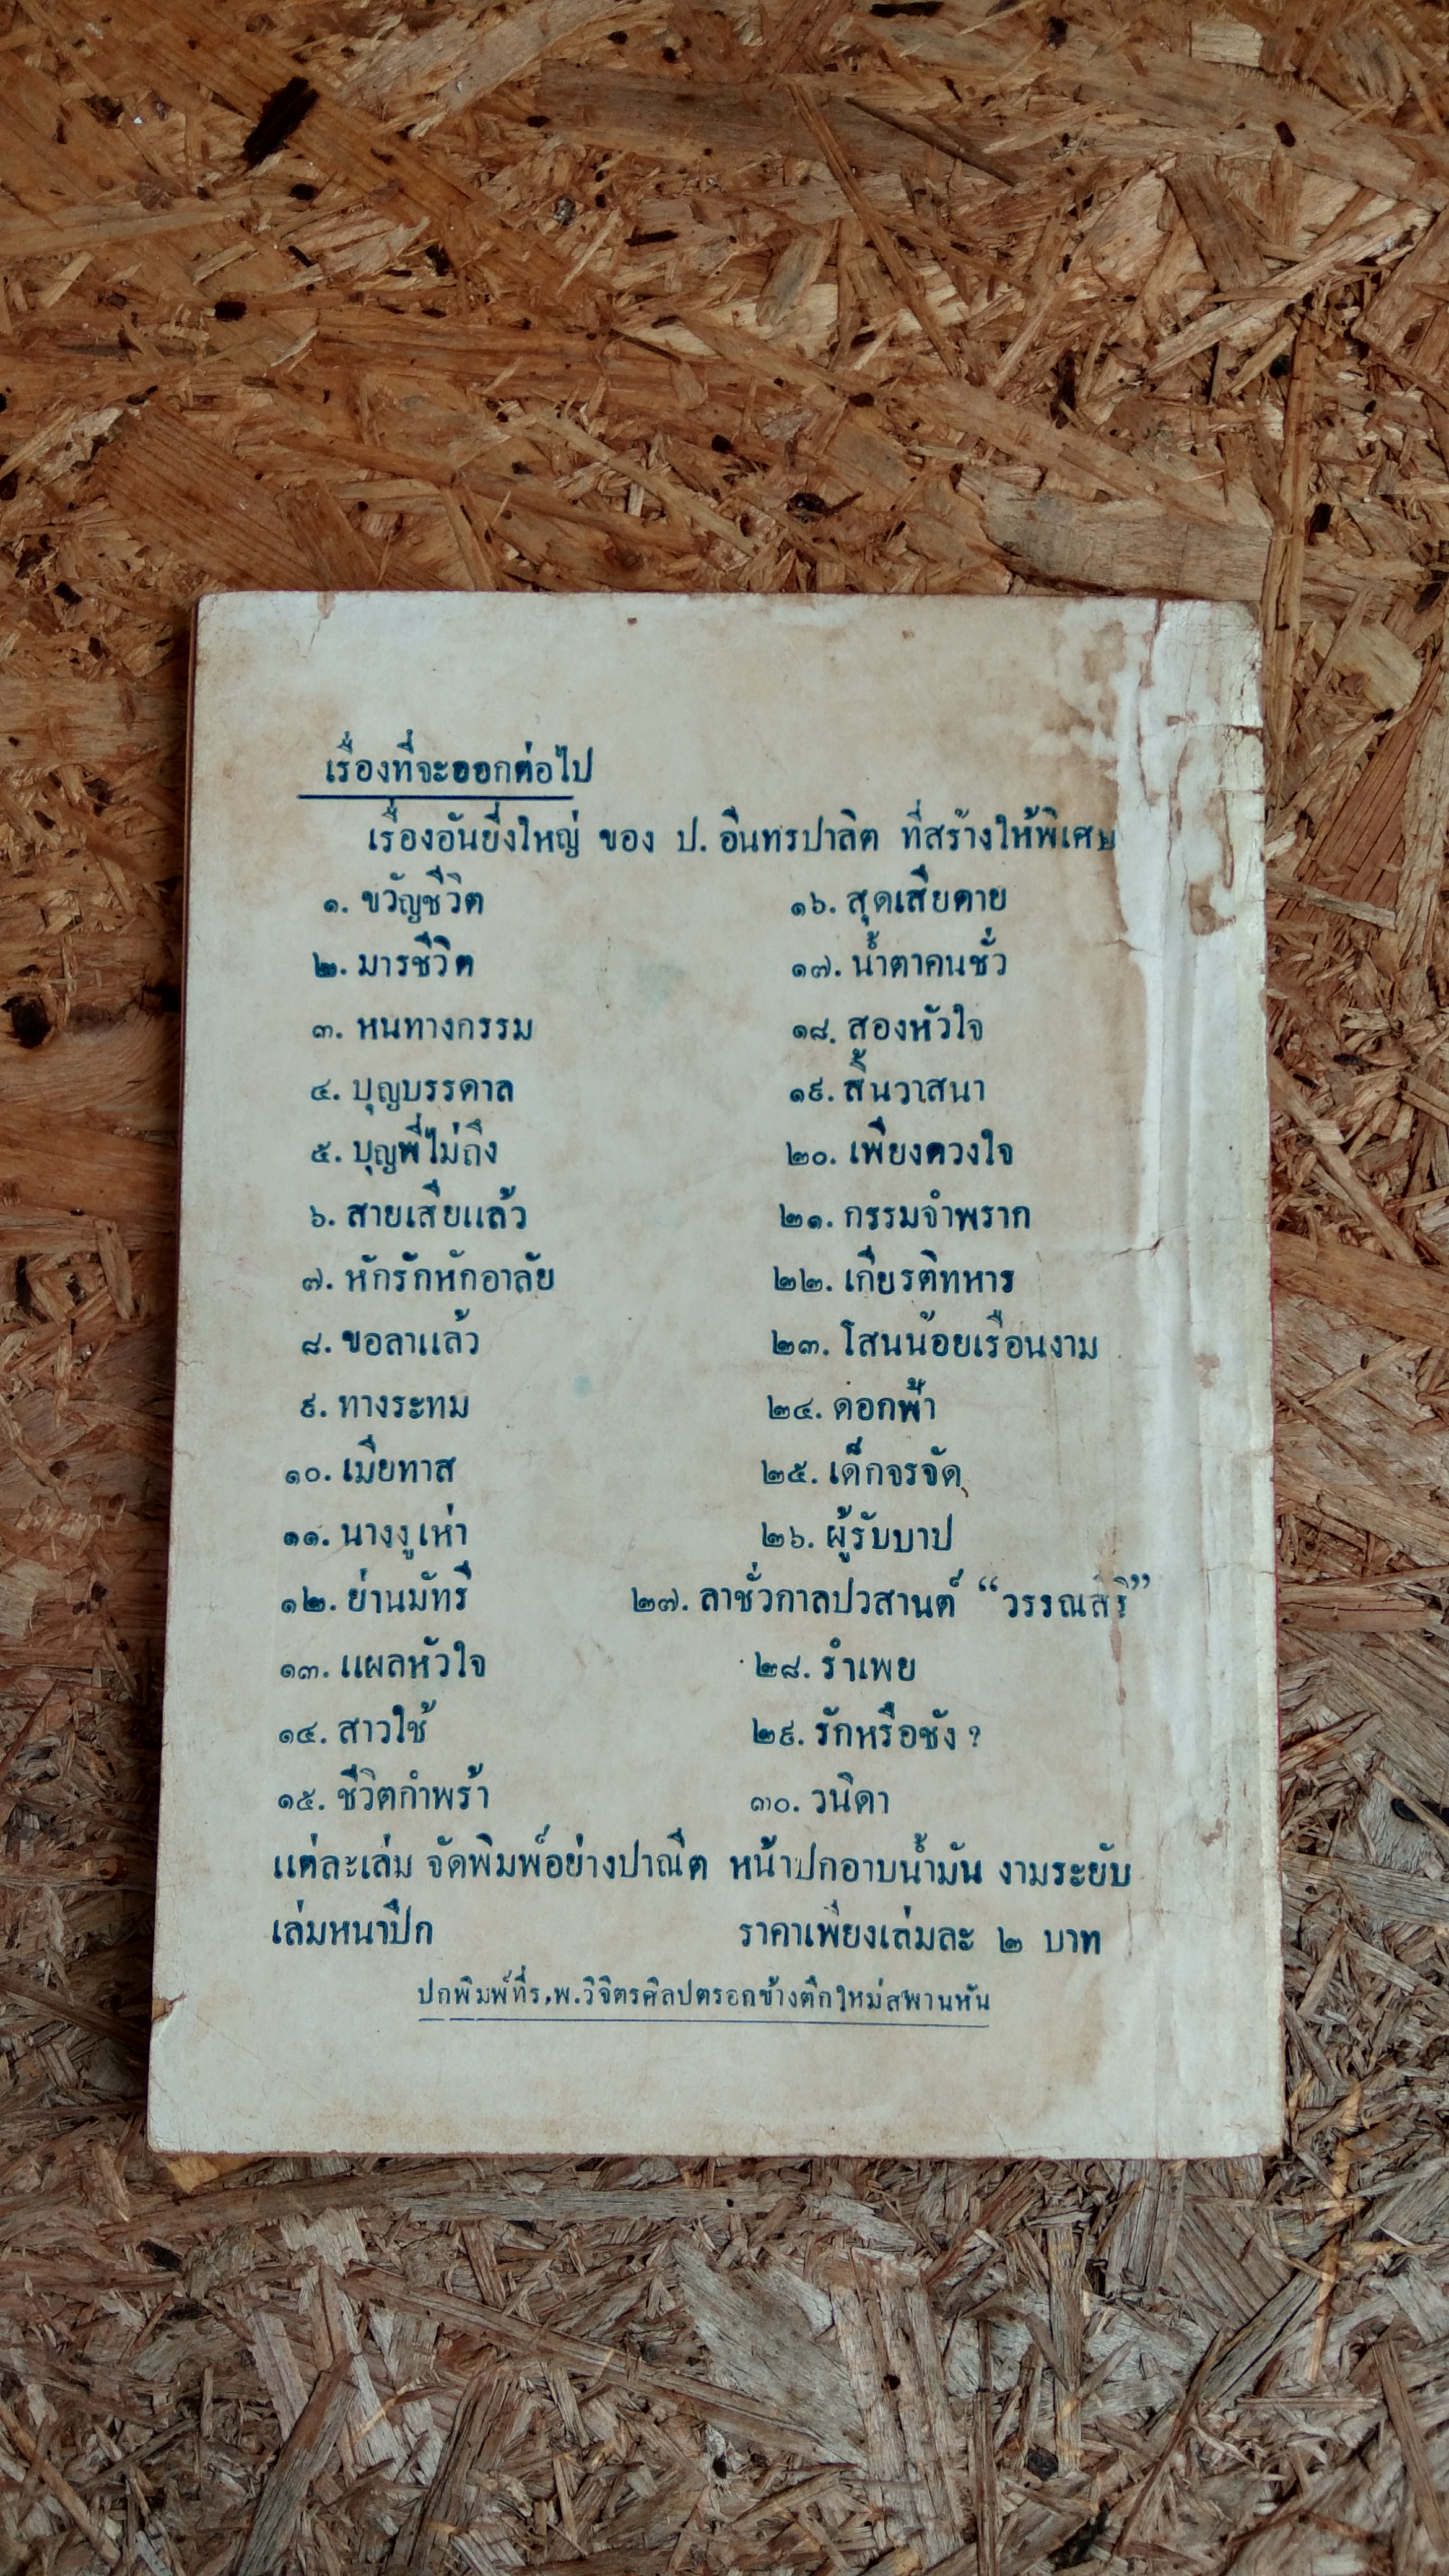 เรื่องที่จะออกต่อไป
เรื่องอันยิ่งใหญ่ ของ ป. อินทรปาลิต ที่สร้างให้พิเศษ
๑. ขวัญชีวิต
๒. มารชีวิต
๓. หนทางกรรม
๔. บุญบรรดาล
๕. บุญพี่ไม่ถึง
๖. สายเสียแล้ว
๗. หักรักหักอาลัย
๘. ขอลาแล้ว
๙. ทางระทม
๑๐. เมียทาส
๑๑. นางงูเห่า
๑๒. ย่านมัทรี
๑๓. แผลหัวใจ
๑๔. สาวใช้
๑๕. ชีวิตกำพร้า
๑๖. สุดเสียดาย
๑๗. น้ำตาคนชั่ว
๑๘. สองหัวใจ
๑๙. สิ้นวาสนา
๒๐. เพียงดวงใจ
๒๑. กรรมจำพราก
๒๒. เกียรติทหาร
๒๓. โสนน้อยเรือนงาม
๒๔. ดอกฟ้า
๒๕. เด็กจรจัด
๒๖. ผู้รับบาป
๒๗. ลาชั่วกาลปวสานต์ “วรรณสิริ”
๒๘. รำเพย
๒๙. รักหรือชัง ?
๓๐. วนิดา
แต่ละเล่ม จัดพิมพ์อย่างปาณีต หน้าปกอาบน้ำมัน งามระยับ
เล่มหนาปึก ราคาเพียงเล่มละ ๒ บาท
ปกพิมพ์ที่ร.พ.วิจิตรศิลปตรอกข้างตึกใหม่สพานหัน